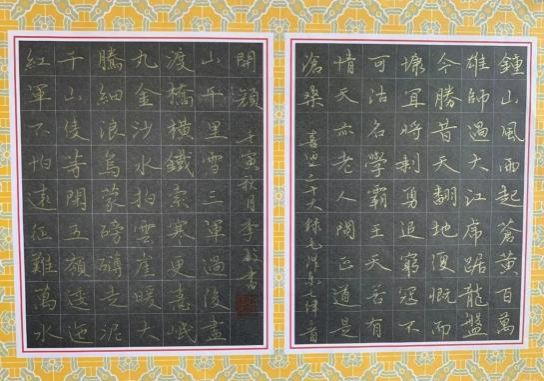 鍾山風雨起蒼黃百萬
雄師過大江虎踞龍盤
今勝昔天翻地覆慨而
慷宜將剩勇追窮寇不
可沽名學霸王天若有
情天亦老人間正道是
滄桑 喜迎二十大 錄毛澤東七律二首
紅軍不怕遠征難萬水
千山隻等閒五嶺逶迤
騰細浪烏蒙磅礴走泥
丸金沙水拍雲崖暖大
渡橋橫鐵索寒更喜岷
山千里雪三軍過後盡
開顏 壬寅秋月李敏書